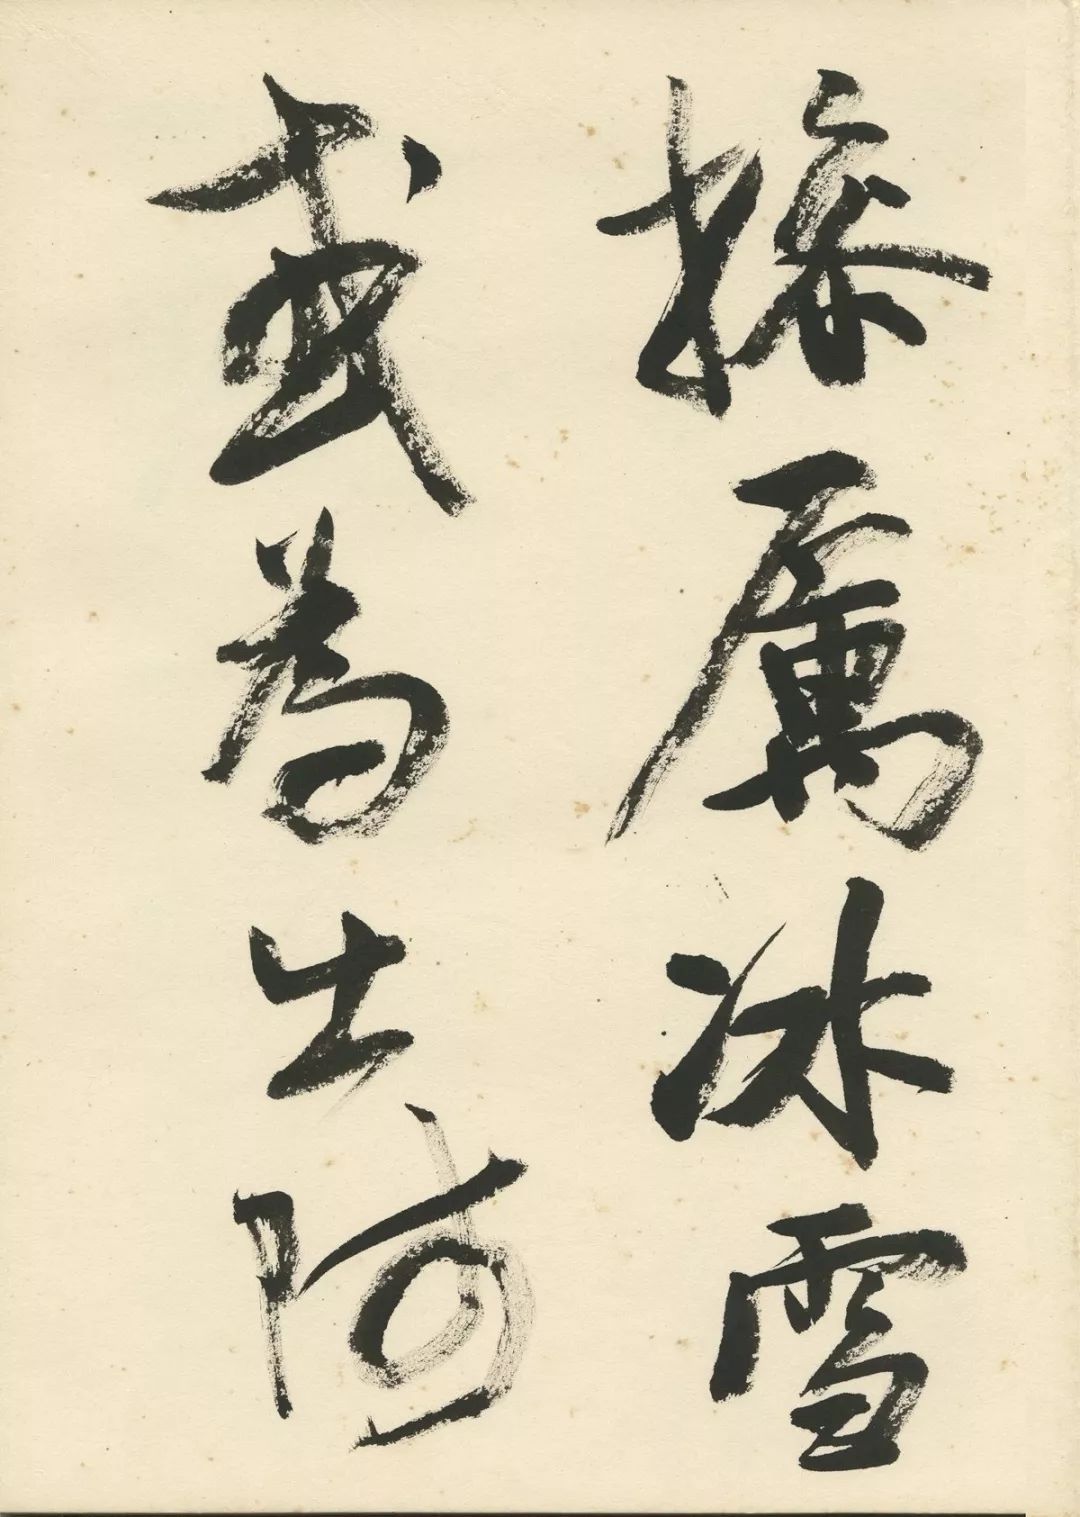 操厲冰雪
或為出師